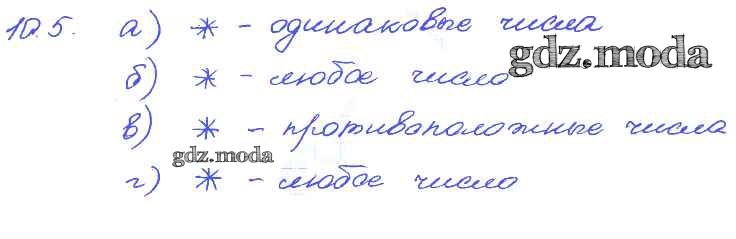 10.5. а) * - одинаковые числа
gdz.moda
б) * - любое число
в) * - противоположные числа
gdz.moda
г) * - любое число